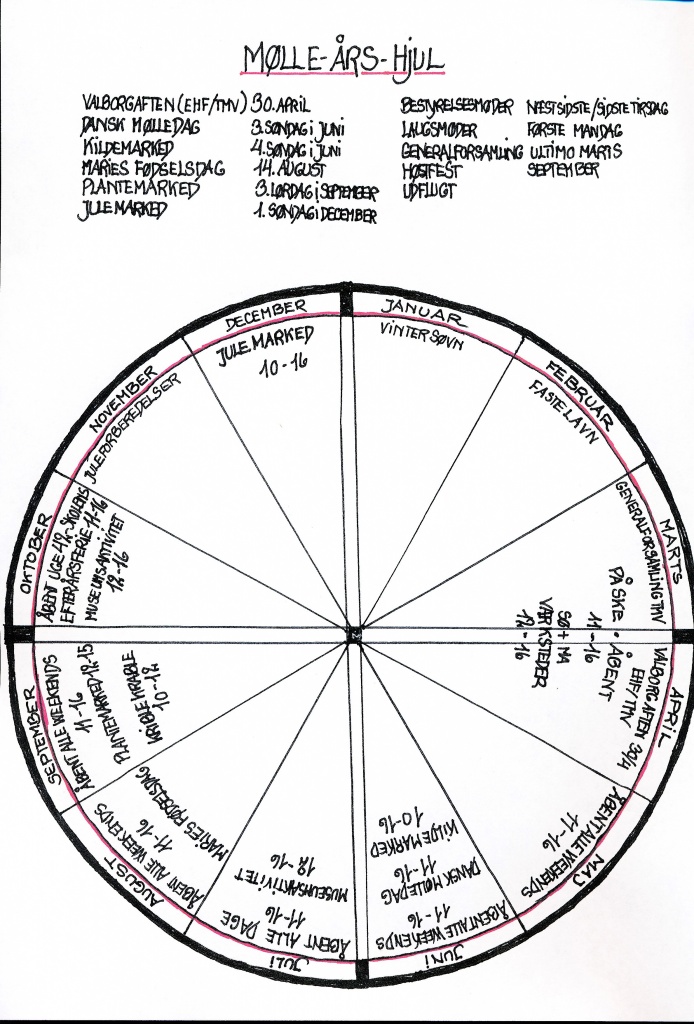 MØLLE-ÅRS-HJUL
VALBORGAFTEN (EHF/TMV) 30. APRIL
DANSK MØLLEDAG 3. SØNDAG I JUNI
KILDEMARKED 4. SØNDAG I JUNI
MARIES FØDSELSDAG 14. AUGUST
PLANTEMARKED 3. LØRDAG I SEPTEMBER
JULEMARKED 1. SØNDAG I DECEMBER
BESTYRELSESMØDER NÆSTSIDSTE/SIDSTE TIRSDAG
LAUGSMØDER FØRSTE MANDAG
GENERALFORSAMLING ULTIMO MARTS
HØSTFEST SEPTEMBER
UDFLUGT
JANUAR
VINTERSØVN
FEBRUAR
FASTELAVN
MARTS
GENERALFORSAMLING TMV
PÅSKE • ÅBENT
11-16
SØ + MA
VÆRKSTEDER
12-16
APRIL
VALBORGAFTEN 30/4
EHF/TMV
MAJ
ÅBENT ALLE WEEKENDS
11-16
JUNI
ÅBENT ALLE WEEKENDS
11-16
DANSK MØLLEDAG
11-16
KILDEMARKED
10-16
JULI
ÅBENT ALLE DAGE
11-16
MUSEUMSAKTIVITET
12-16
AUGUST
ÅBENT ALLE WEEKENDS
11-16
MARIES FØDSELSDAG
SEPTEMBER
ÅBENT ALLE WEEKENDS
11-16
PLANTEMARKED 12-15
10-12
OKTOBER
ÅBENT UGE 42-SKOLENS
EFTERÅRSFERIE 11-16
MUSEUMSAKTIVITET
12-16
NOVEMBER
JULEFORBEREDELSER
DECEMBER
JULEMARKED
10-16